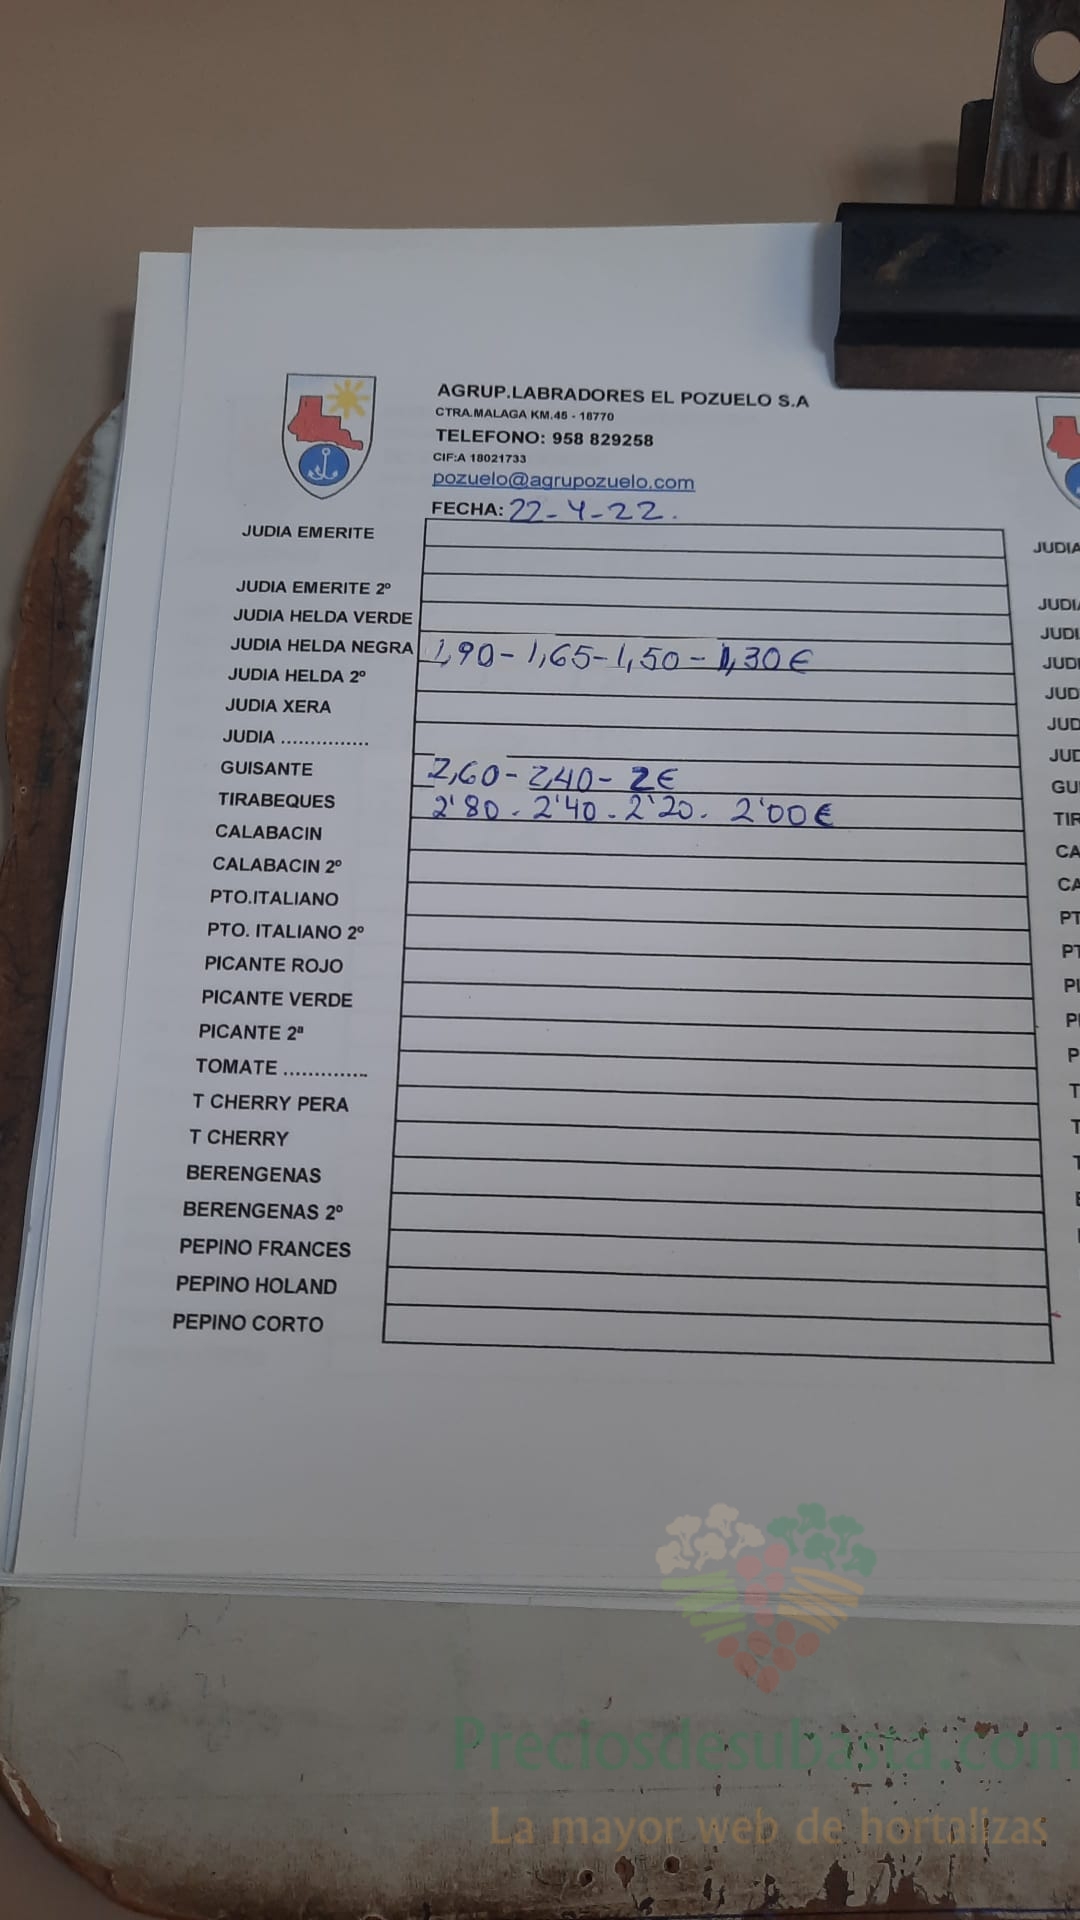 AGRUP.LABRADORES EL POZUELO S.A
CTRA.MALAGA KM.45 - 18770
TELEFONO: 958 829258
CIF:A 18021733
pozuelo@agrupozuelo.com
FECHA: 22-4-22.
JUDIA EMERITE
JUDIA EMERITE 2º
JUDIA HELDA VERDE
JUDIA HELDA NEGRA 1,90-1,65-1,50-1,30€
JUDIA HELDA 2º
JUDIA XERA
JUDIA ...............
GUISANTE 2,60-2,40-2€
TIRABEQUES 2'80.2'40.2'20.2'00€
CALABACIN
CALABACIN 2º
PTO.ITALIANO
PTO. ITALIANO 2º
PICANTE ROJO
PICANTE VERDE
PICANTE 2ª
TOMATE .............
T CHERRY PERA
T CHERRY
BERENGENAS
BERENGENAS 2º
PEPINO FRANCES
PEPINO HOLAND
PEPINO CORTO
JUDIA
Preciosdesubasta.com
La mayor web de hortalizas